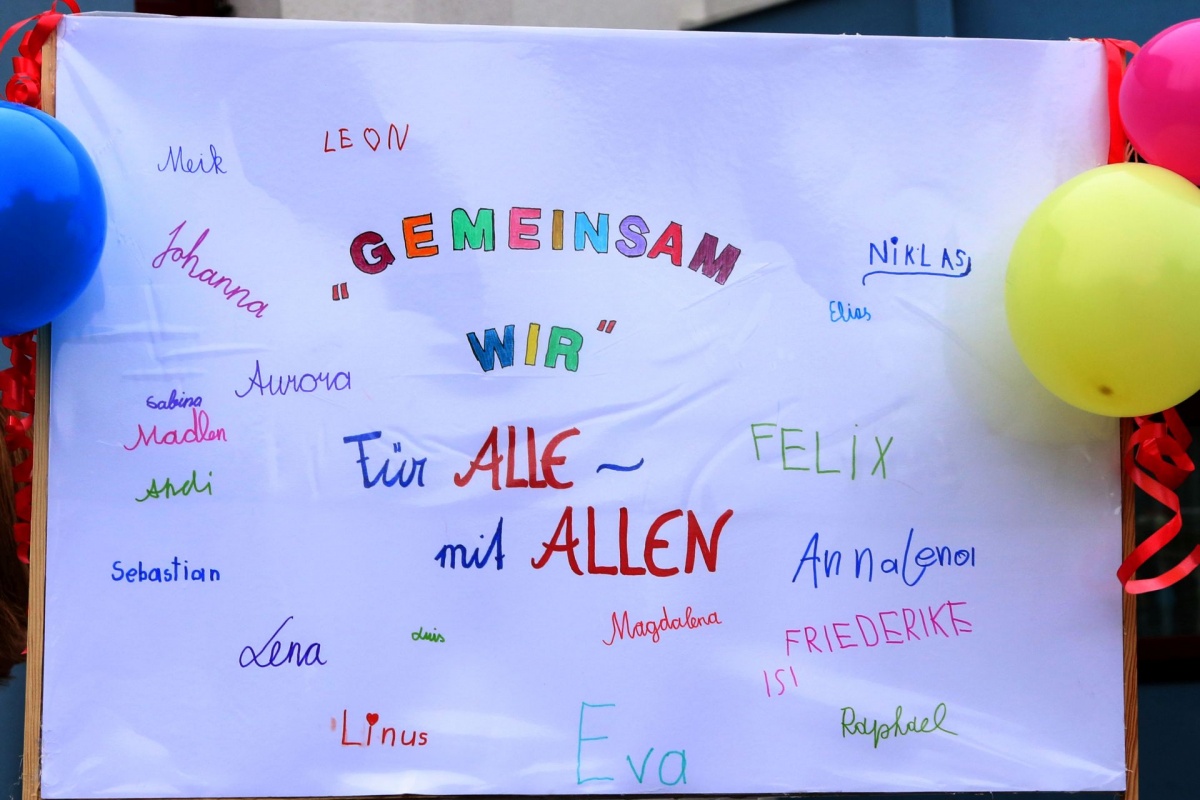 LEON
Meik
Johanna
„GEMEINSAM
WIR"
NIKLAS
Elias
Aurora
Sabina
Madlen
Andi
Für ALLE ~
mit ALLEN
FELIX
Sebastian
Annalena
Lena
Luis
Magdalena
FRIEDERIKE
ISI
Linus
Eva
Raphael